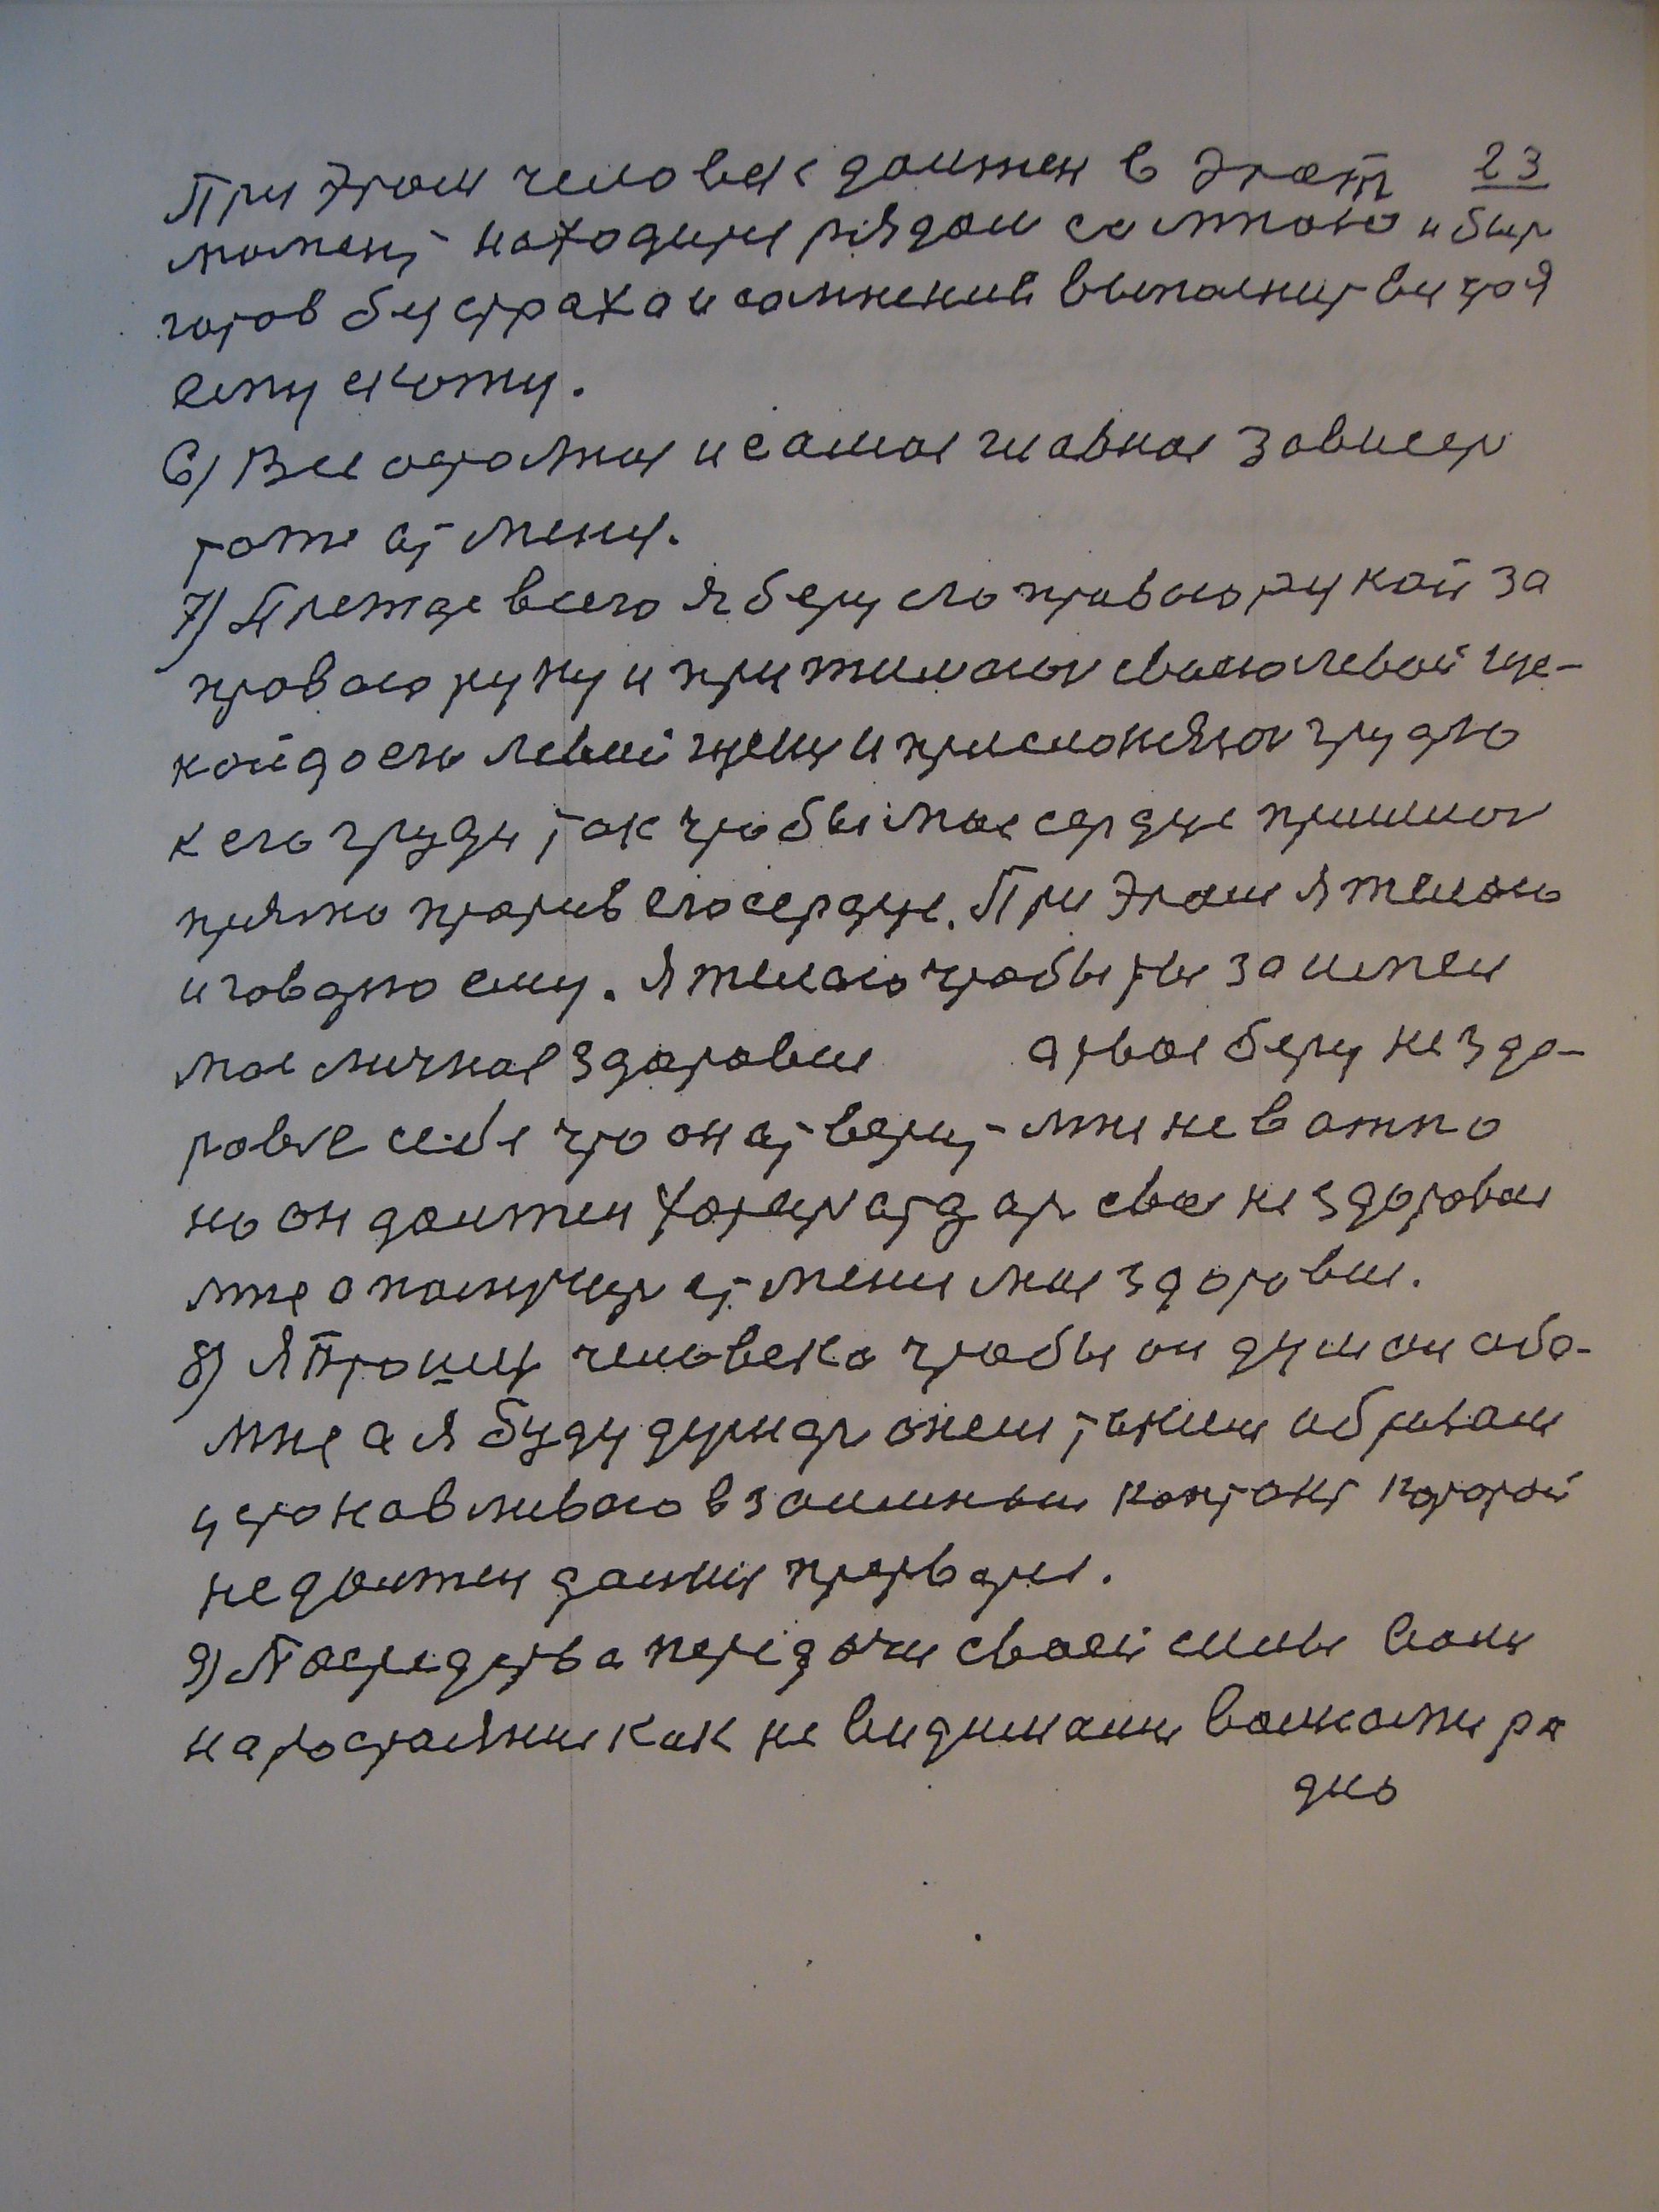 При этом человек должен в этот 23
момент находится рядом со мною и быть
готов без страха и сомнений выполнить все что я
ему скажу.
6) Все остальное и самое главное зависеть
тоже от меня.
7) Прежде всего я беру его правою рукой за
правою руку и прижимаюсь своею левой ще-
кой до его левой щеки и прислоняюсь грудью
к его груди так чтобы мое сердце пришлось
прямо против его сердца. При этом я желаю
и говорю ему. Я желаю чтобы ты заимел
мое личное здоровье а твое беру не здо-
ровье себе что он ответит мне не важно
но он должен хотеть отдать свое не здоровье
мне а получить от меня мое здоровье.
8) Я прошу человека чтобы он думал обо-
мне а я буду думать о нем таким образом
устанавливаю взаимный контакт который
не должен долго прерваться.
9) Посредства передачи своей силы воли
на расстояние как не видимыми волнами ра
дио